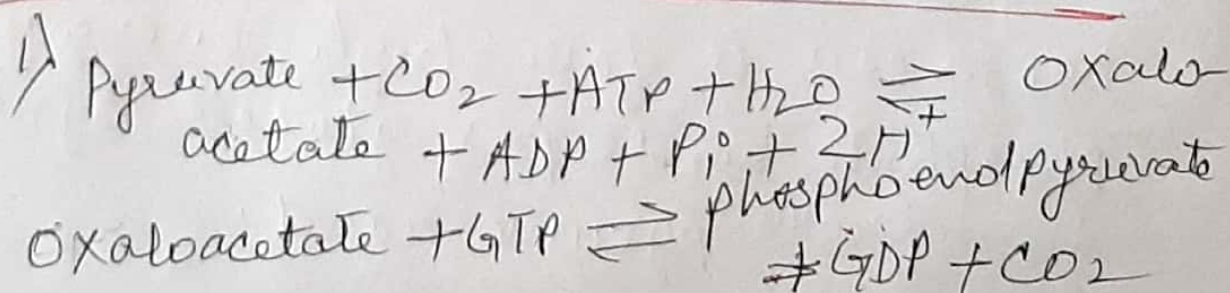 1) Pyruvate + CO2 + ATP + H2O ⇌ Oxalo-
acetate + ADP + Pi + 2H+
Oxaloacetate + GTP ⇌ phosphoenolpyruvate
+ GDP + CO2